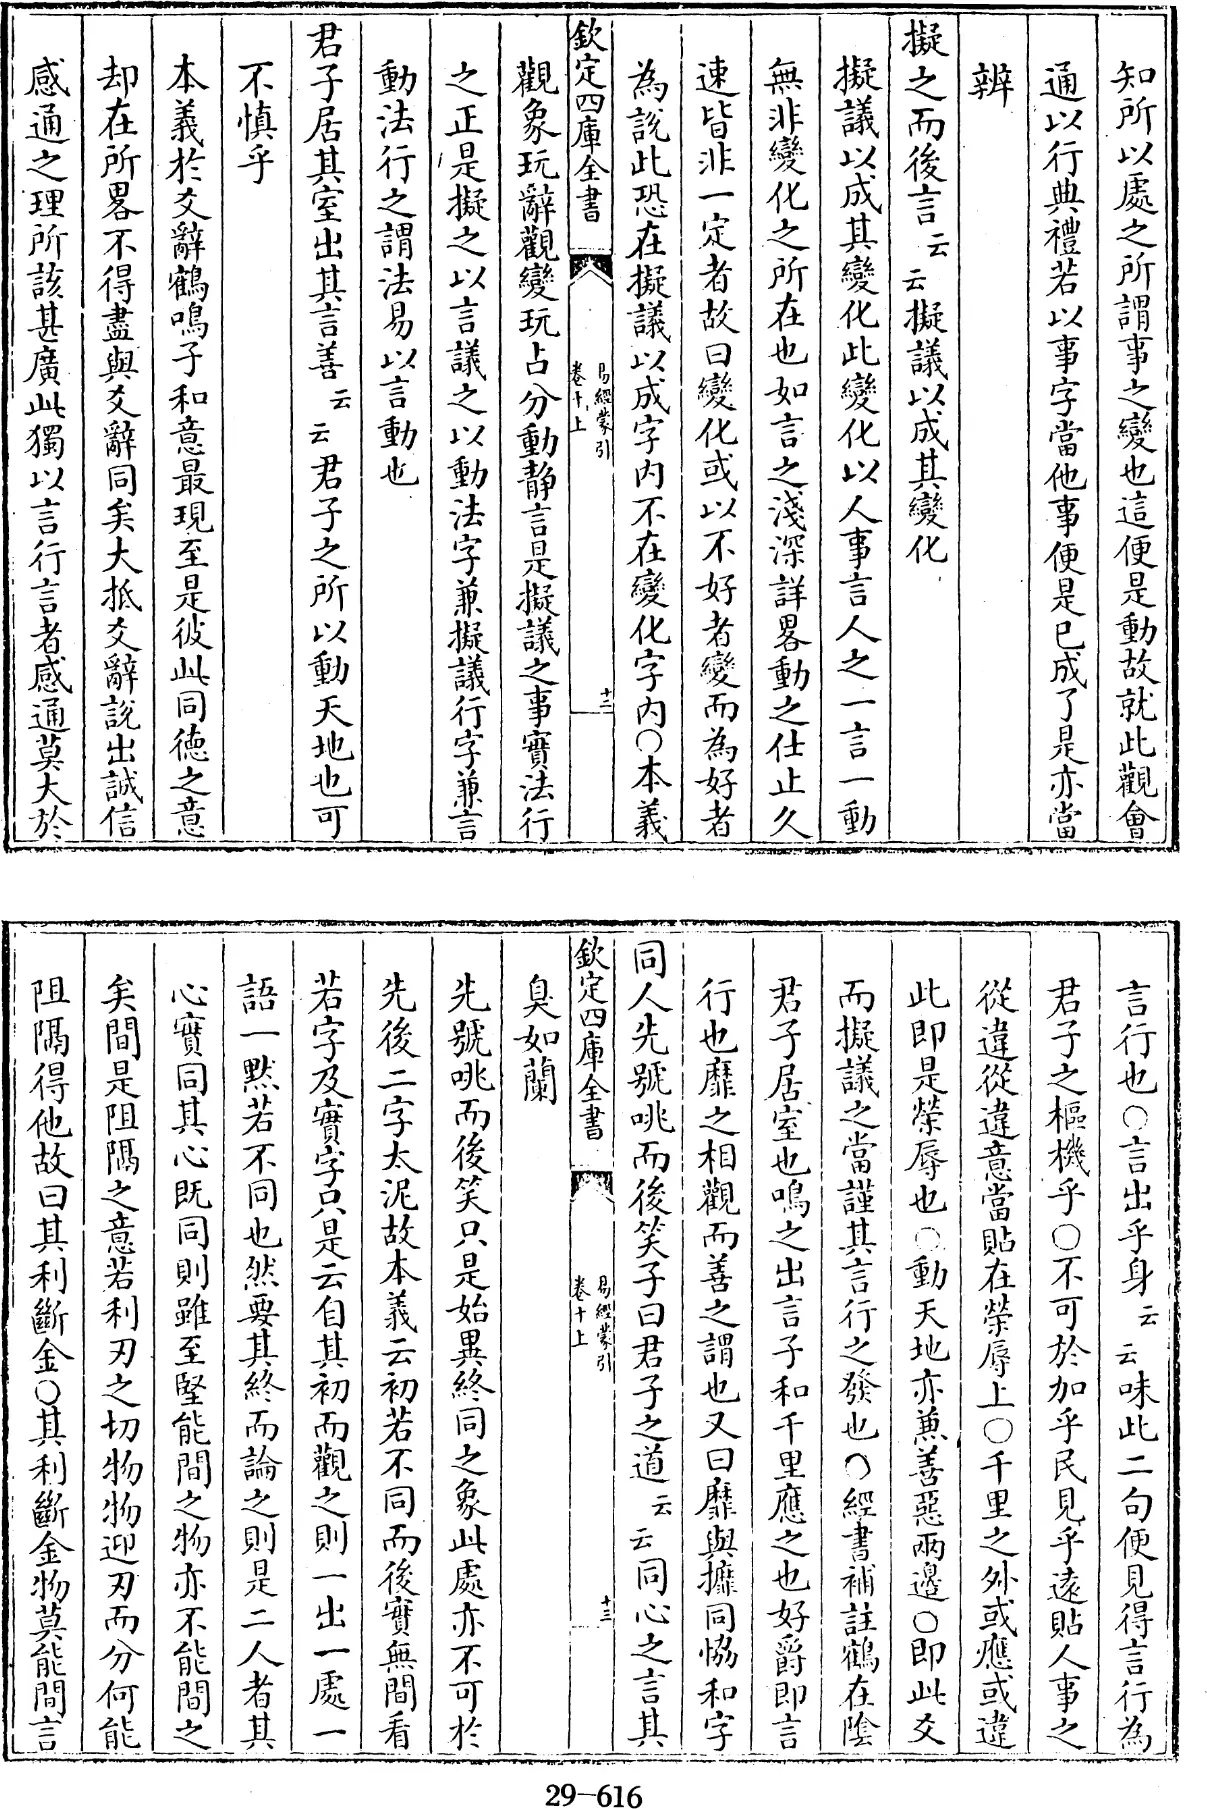 知所以處之所謂事之變也這便是動故就此觀會
通以行典禮若以事字當他事便是已成了是亦當
辨
擬之而後言云云擬議以成其變化
擬議以成其變化此變化以人事言人之一言一動
無非變化之所在也如言之淺深詳畧動之仕止久
速皆非一定者故曰變化或以不好者變而為好者
為說此恐在擬議以成字内不在變化字内○本義
欽定四庫全書
易經蒙引
卷十上
十二
觀象玩辭觀變玩占分動靜言是擬議之事實法行
之正是擬之以言議之以動法字兼擬議行字兼言
動法行之謂法易以言動也
君子居其室出其言善云云君子之所以動天地也可
不慎乎
本義於爻辭鶴鳴子和意最現至是彼此同德之意
却在所畧不得盡與爻辭同矣大抵爻辭說出誠信
感通之理所該甚廣此獨以言行言者感通莫大於
言行也○言出乎身云云味此二句便見得言行為
君子之樞機乎○不可於加乎民見乎遠貼人事之
從違從違意當貼在榮辱上○千里之外或應或違
此即是榮辱也○動天地亦兼善惡兩邊○即此爻
而擬議之當謹其言行之發也○經書補註鶴在陰
君子居室也鳴之出言子和千里應之也好爵即言
行也靡之相觀而善之謂也又曰靡與㩦同恊和字
同人先號咷而後笑子曰君子之道云云同心之言其
欽定四庫全書
易經蒙引
卷十上
十三
臭如蘭
先號咷而後笑只是始異終同之象此處亦不可於
先後二字太泥故本義云初若不同而後實無間看
若字及實字只是云自其初而觀之則一出一處一
語一默若不同也然要其終而論之則是二人者其
心實同其心既同則雖至堅能間之物亦不能間之
矣間是阻隔之意若利刃之切物物迎刃而分何能
阻隔得他故曰其利斷金○其利斷金物莫能間言
29-616